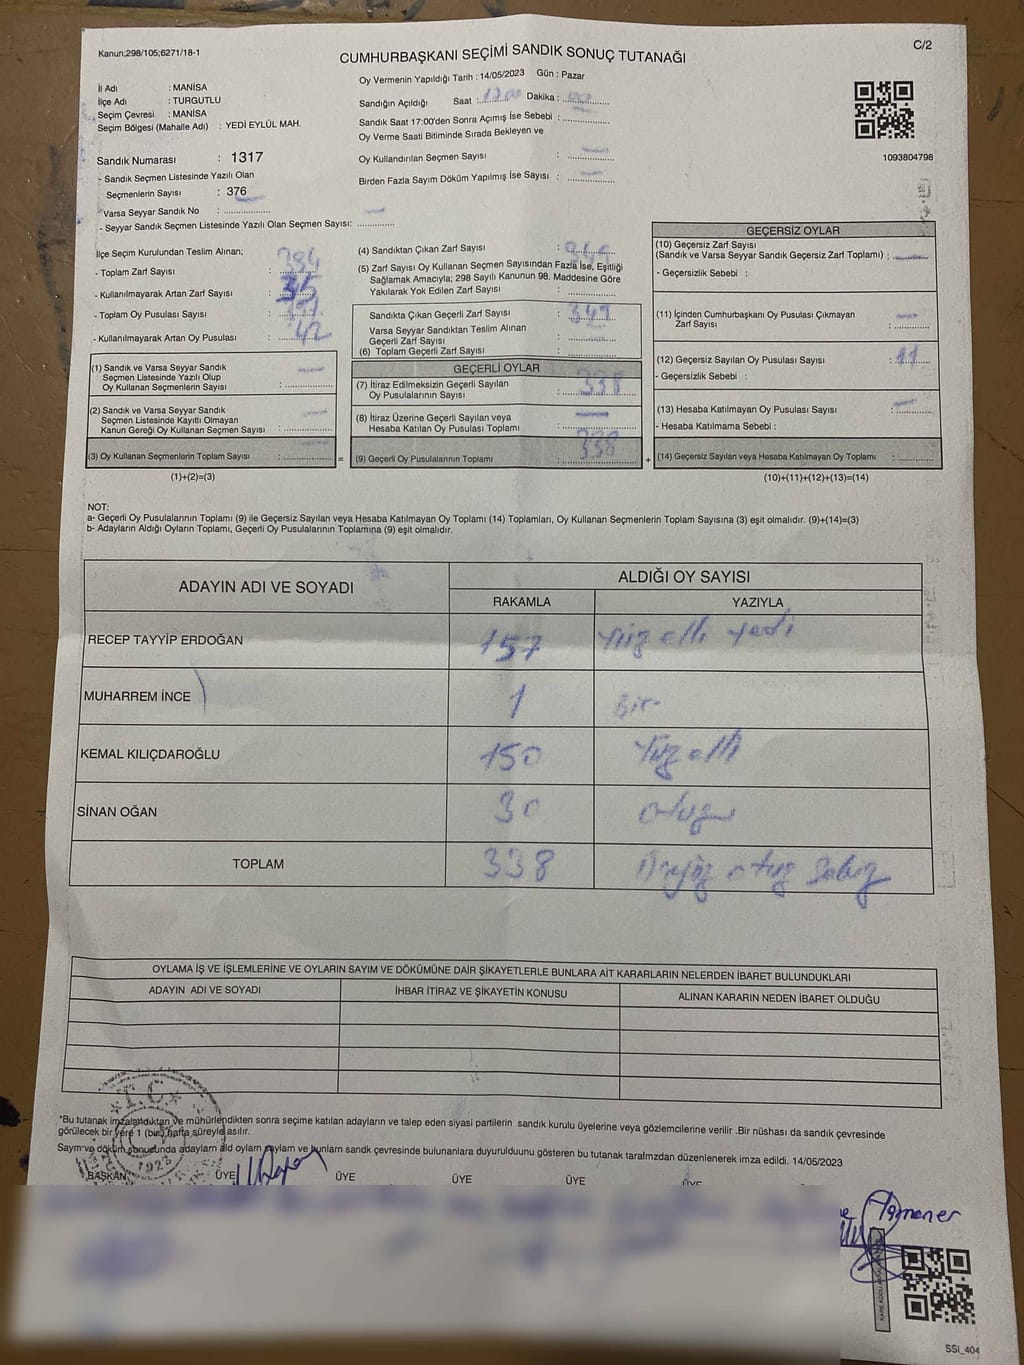 Kanun;298/105;6271/18-1
C/2
CUMHURBAŞKANI SEÇİMİ SANDIK SONUÇ TUTANAĞI
İl Adı : MANİSA
İlçe Adı : TURGUTLU
Seçim Çevresi : MANİSA
Seçim Bölgesi (Mahalle Adı) : YEDİ EYLÜL MAH.
Sandık Numarası : 1317
- Sandık Seçmen Listesinde Yazılı Olan
Seçmenlerin Sayısı : 376
Varsa Seyyar Sandık No :
- Seyyar Sandık Seçmen Listesinde Yazılı Olan Seçmen Sayısı:
Oy Vermenin Yapıldığı Tarih : 14/05/2023 Gün : Pazar
Sandığın Açıldığı Saat : 17.00 Dakika : 00
Sandık Saat 17:00'den Sonra Açımış İse Sebebi :
Oy Verme Saati Bitiminde Sırada Bekleyen ve
Oy Kullandırılan Seçmen Sayısı : —
Birden Fazla Sayım Döküm Yapılmış İse Sayısı : —
1093804798
İlçe Seçim Kurulundan Teslim Alınan;
- Toplam Zarf Sayısı : 384
- Kullanılmayarak Artan Zarf Sayısı : 35
- Toplam Oy Pusulası Sayısı :
- Kullanılmayarak Artan Oy Pusulası : 42
(1) Sandık ve Varsa Seyyar Sandık
Seçmen Listesinde Yazılı Olup
Oy Kullanan Seçmenlerin Sayısı : —
(2) Sandık ve Varsa Seyyar Sandık
Seçmen Listesinde Kayıtlı Olmayan
Kanun Gereği Oy Kullanan Seçmen Sayısı : —
(3) Oy Kullanan Seçmenlerin Toplam Sayısı :
(1)+(2)=(3)
=
(4) Sandıktan Çıkan Zarf Sayısı : 349
(5) Zarf Sayısı Oy Kullanan Seçmen Sayısından Fazla İse, Eşitliği
Sağlamak Amacıyla; 298 Sayılı Kanunun 98. Maddesine Göre
Yakılarak Yok Edilen Zarf Sayısı :
Sandıkta Çıkan Geçerli Zarf Sayısı : 349
Varsa Seyyar Sandıktan Teslim Alınan
Geçerli Zarf Sayısı :
(6) Toplam Geçerli Zarf Sayısı :
GEÇERLİ OYLAR
(7) İtiraz Edilmeksizin Geçerli Sayılan
Oy Pusulalarının Sayısı : 338
(8) İtiraz Üzerine Geçerli Sayılan veya
Hesaba Katılan Oy Pusulası Toplamı : —
(9) Geçerli Oy Pusulalarının Toplamı : 338
+
GEÇERSİZ OYLAR
(10) Geçersiz Zarf Sayısı
(Sandık ve Varsa Seyyar Sandık Geçersiz Zarf Toplamı) : —
- Geçersizlik Sebebi :
(11) İçinden Cumhurbaşkanı Oy Pusulası Çıkmayan
Zarf Sayısı : —
(12) Geçersiz Sayılan Oy Pusulası Sayısı : 11
- Geçersizlik Sebebi :
(13) Hesaba Katılmayan Oy Pusulası Sayısı : —
- Hesaba Katılmama Sebebi :
(14) Geçersiz Sayılan veya Hesaba Katılmayan Oy Toplamı :
(10)+(11)+(12)+(13)=(14)
NOT:
a- Geçerli Oy Pusulalarının Toplamı (9) ile Geçersiz Sayılan veya Hesaba Katılmayan Oy Toplamı (14) Toplamları, Oy Kullanan Seçmenlerin Toplam Sayısına (3) eşit olmalıdır. (9)+(14)=(3)
b- Adayların Aldığı Oyların Toplamı, Geçerli Oy Pusulalarının Toplamına (9) eşit olmalıdır.
ADAYIN ADI VE SOYADI
ALDIĞI OY SAYISI
RAKAMLA YAZIYLA
RECEP TAYYİP ERDOĞAN 157 Yüz elli yedi
MUHARREM İNCE 1 Bir
KEMAL KILIÇDAROĞLU 150 Yüz elli
SİNAN OĞAN 30 otuz
TOPLAM 338 Üçyüz otuz Sekiz
OYLAMA İŞ VE İŞLEMLERİNE VE OYLARIN SAYIM VE DÖKÜMÜNE DAİR ŞİKAYETLERLE BUNLARA AİT KARARLARIN NELERDEN İBARET BULUNDUKLARI
ADAYIN ADI VE SOYADI İHBAR İTİRAZ VE ŞİKAYETİN KONUSU ALINAN KARARIN NEDEN İBARET OLDUĞU
T.C.
1923
*Bu tutanak imzalandıktan ve mühürlendikten sonra seçime katılan adayların ve talep eden siyasi partilerin sandık kurulu üyelerine veya gözlemcilerine verilir .Bir nüshası da sandık çevresinde
görülecek bir yere 1 (bir) hafta süreyle asılır.
Sayım ve döküm sonucunda adayların ald oyların bunların sandık çevresinde bulunanlara duyurulduunu gösteren bu tutanak tarafmzdan düzenlenerek imza edildi. 14/05/2023
BAŞKAN ÜYE ÜYE ÜYE ÜYE ÜYE
SSI_404